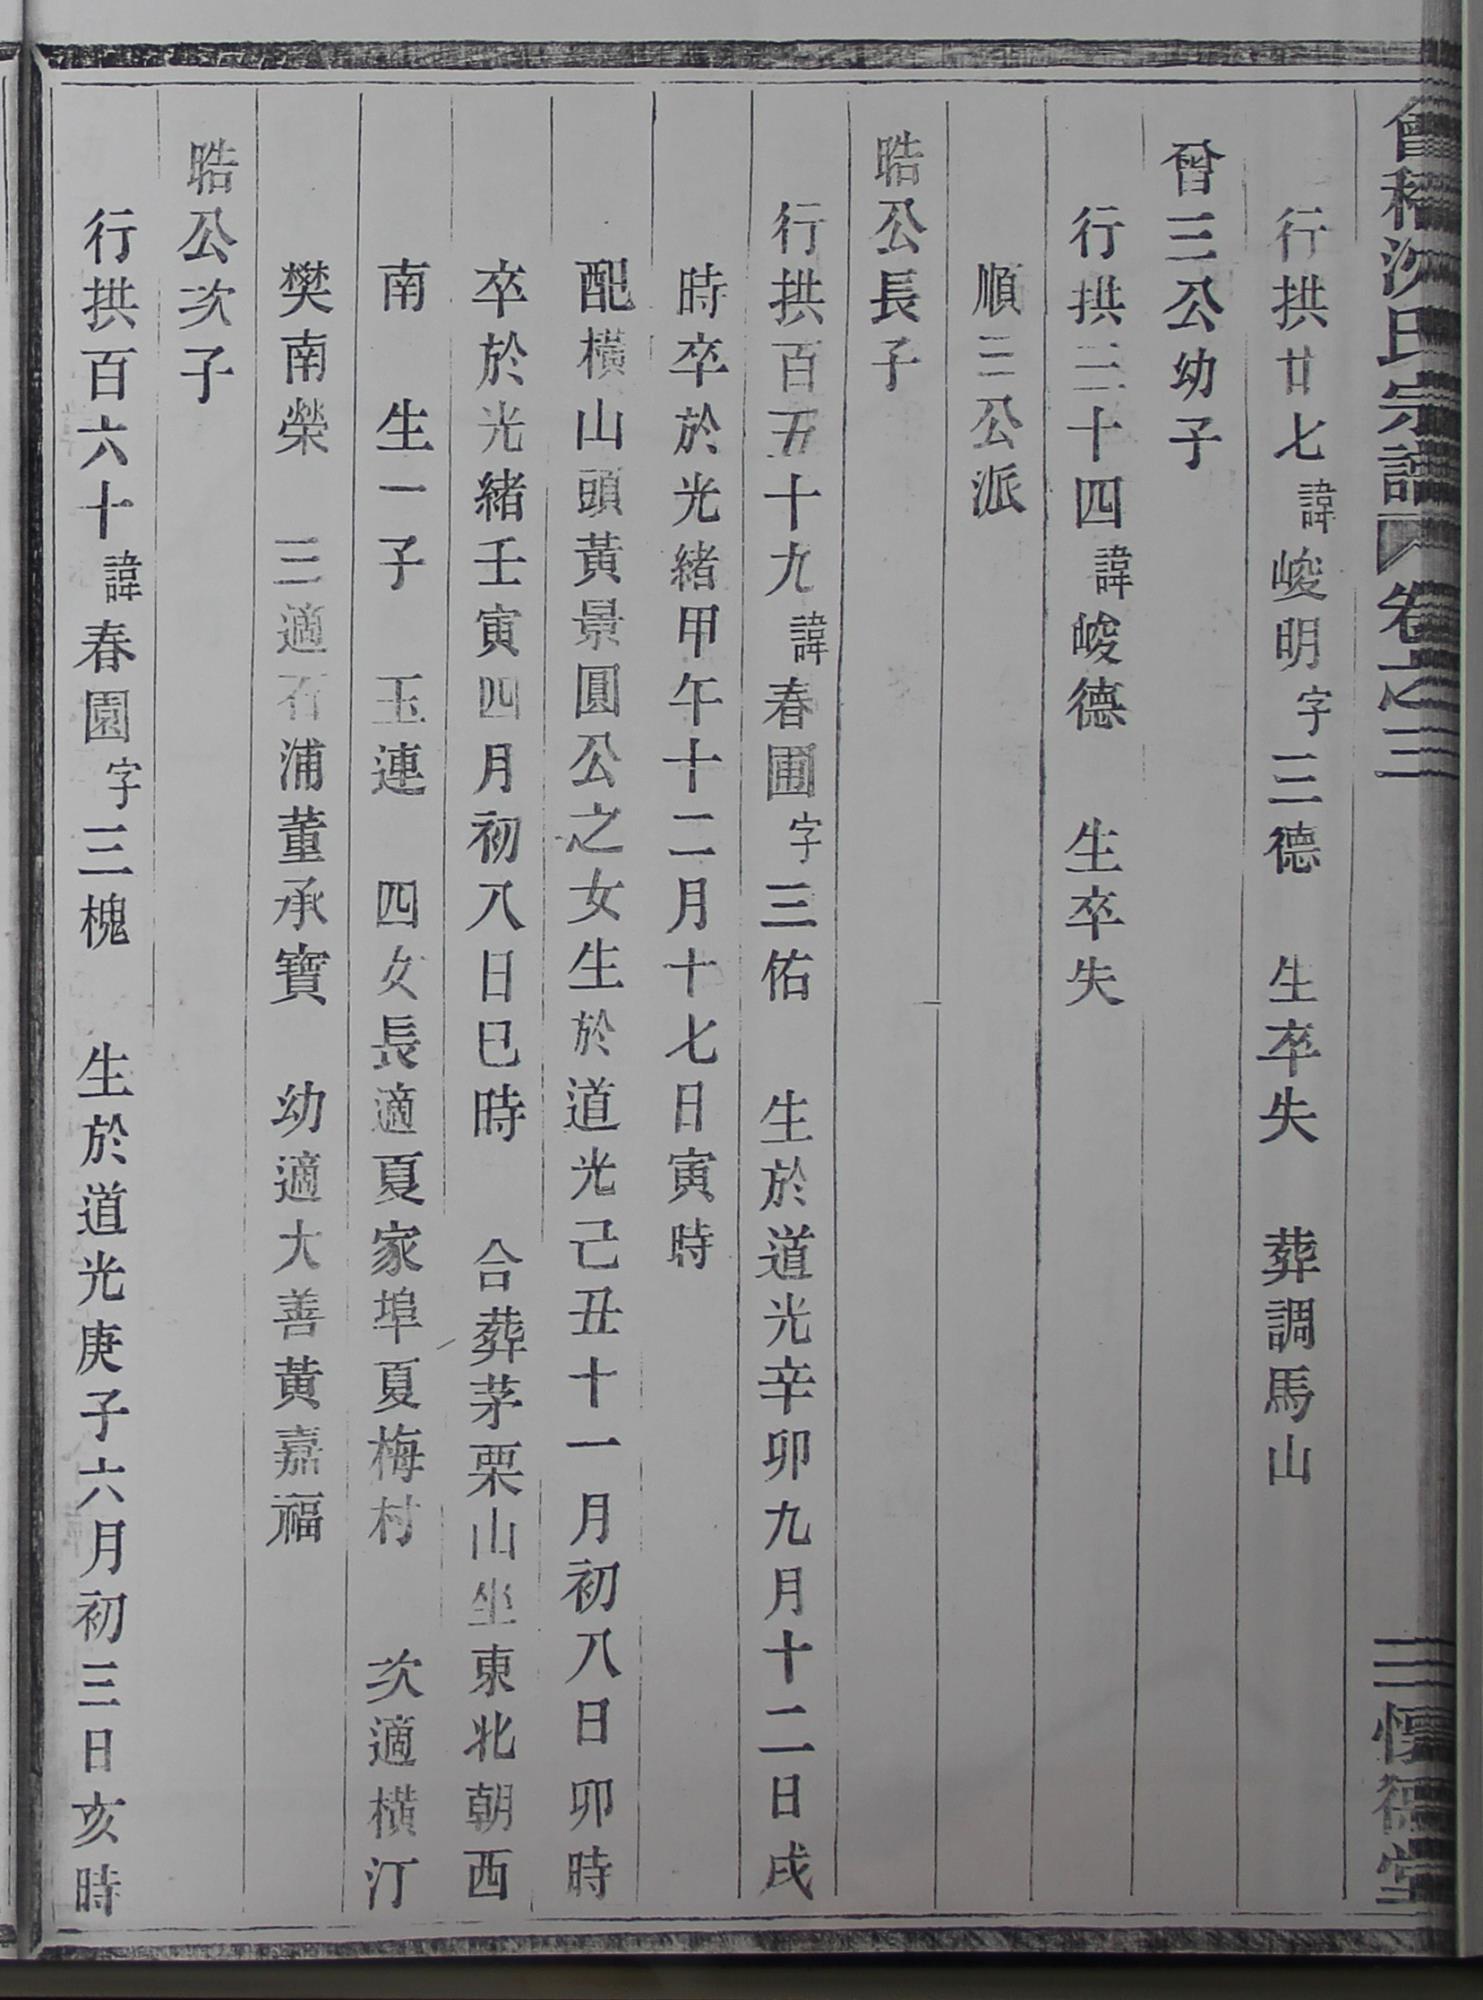 會稽沈氏宗譜 卷之三 懷德堂
行拱廿七諱峻明字三德 生卒失 葬調馬山
曾三公幼子
行拱三十四諱峻德 生卒失
順三公派
晧公長子
行拱百五十九諱春圃字三佑 生於道光辛卯九月十二日戌
時卒於光緒甲午十二月十七日寅時
配橫山頭黃景圓公之女生於道光己丑十一月初八日卯時
卒於光緒壬寅四月初八日巳時 合葬茅栗山坐東北朝西
南 生一子 玉連 四女長適夏家埠夏梅村 次適橫汀
樊南榮 三適石浦董承寶 幼適大善黃嘉福
晧公次子
行拱百六十諱春園字三槐 生於道光庚子六月初三日亥時